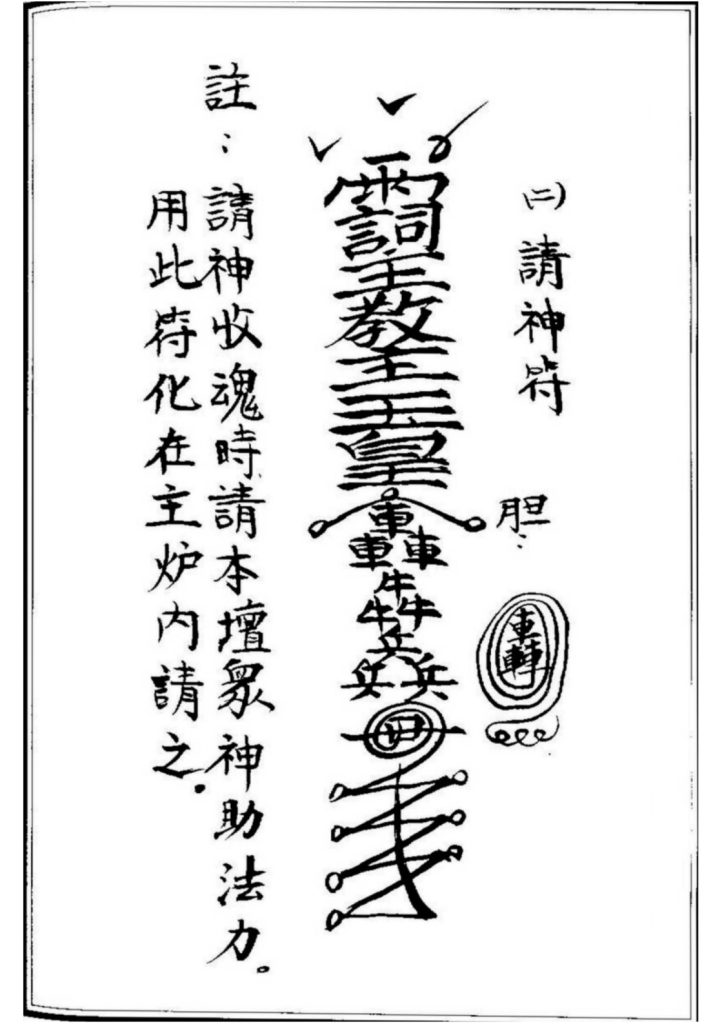 ㈡請神符
胆：
車轉
詞
主
教
主
玉
皇
車
車車
牛
牛牛
兵
兵兵
註：請神收魂時請本壇眾神助法力。
用此符化在主炉內請之。